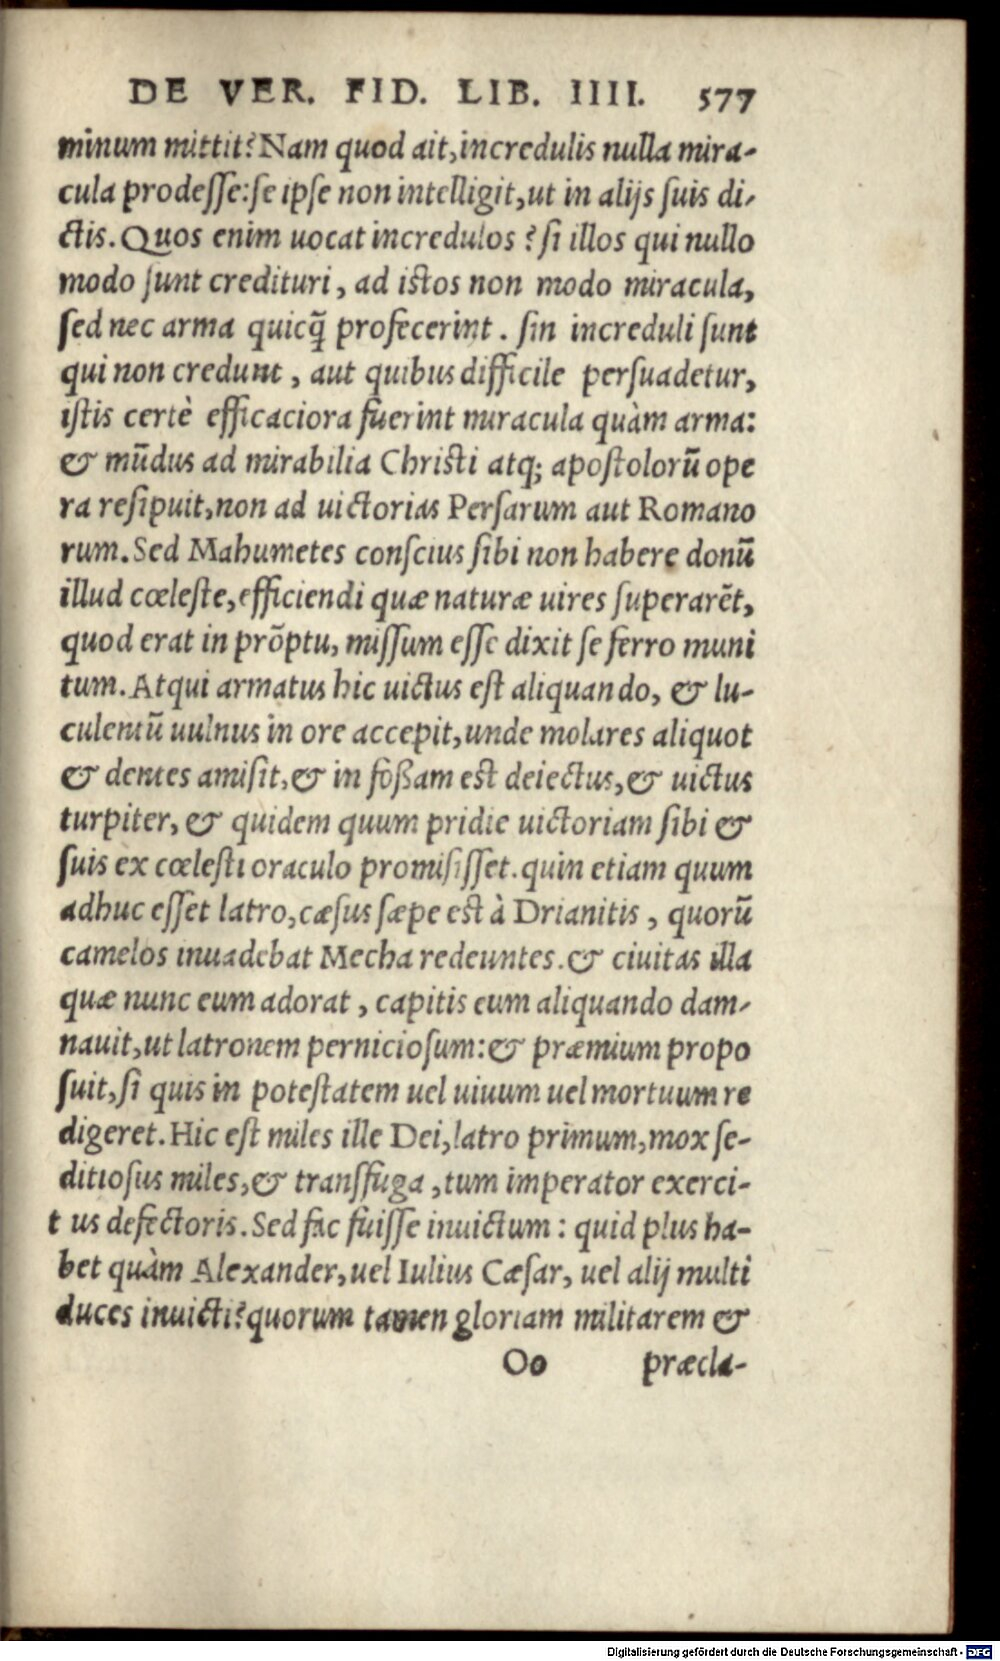 DE VER. FID. LIB. IIII. 577
minum mittit? Nam quod ait, incredulis nulla mira-
cula prodesse: se ipse non intelligit, ut in alijs suis di-
ctis. Quos enim uocat incredulos? si illos qui nullo
modo sunt credituri, ad istos non modo miracula,
sed nec arma quicq̃ profecerint. sin increduli sunt
qui non credunt, aut quibus difficile persuadetur,
istis certè efficaciora fuerint miracula quàm arma:
& mũdus ad mirabilia Christi atq; apostolorũ ope
ra resipuit, non ad uictorias Persarum aut Romano
rum. Sed Mahumetes conscius sibi non habere donũ
illud cœleste, efficiendi quæ naturæ uires superarẽt,
quod erat in prõptu, missum esse dixit se ferro muni
tum. Atqui armatus hic uictus est aliquando, & lu-
culentũ uulnus in ore accepit, unde molares aliquot
& dentes amisit, & in foßam est deiectus, & uictus
turpiter, & quidem quum pridie uictoriam sibi &
suis ex cœlesti oraculo promisisset. quin etiam quum
adhuc esset latro, cæsus sæpe est à Drianitis, quorũ
camelos inuadebat Mecha redeuntes. & ciuitas illa
quæ nunc eum adorat, capitis eum aliquando dam-
nauit, ut latronem perniciosum: & præmium propo
suit, si quis in potestatem uel uiuum uel mortuum re
digeret. Hic est miles ille Dei, latro primum, mox se-
ditiosus miles, & transfuga, tum imperator exerci-
t us defectoris. Sed fac fuisse inuictum: quid plus ha-
bet quàm Alexander, uel Iulius Cæsar, uel alij multi
duces inuicti? quorum tamen gloriam militarem &
Oo præcla-
Digitalisierung gefördert durch die Deutsche Forschungsgemeinschaft - DFG